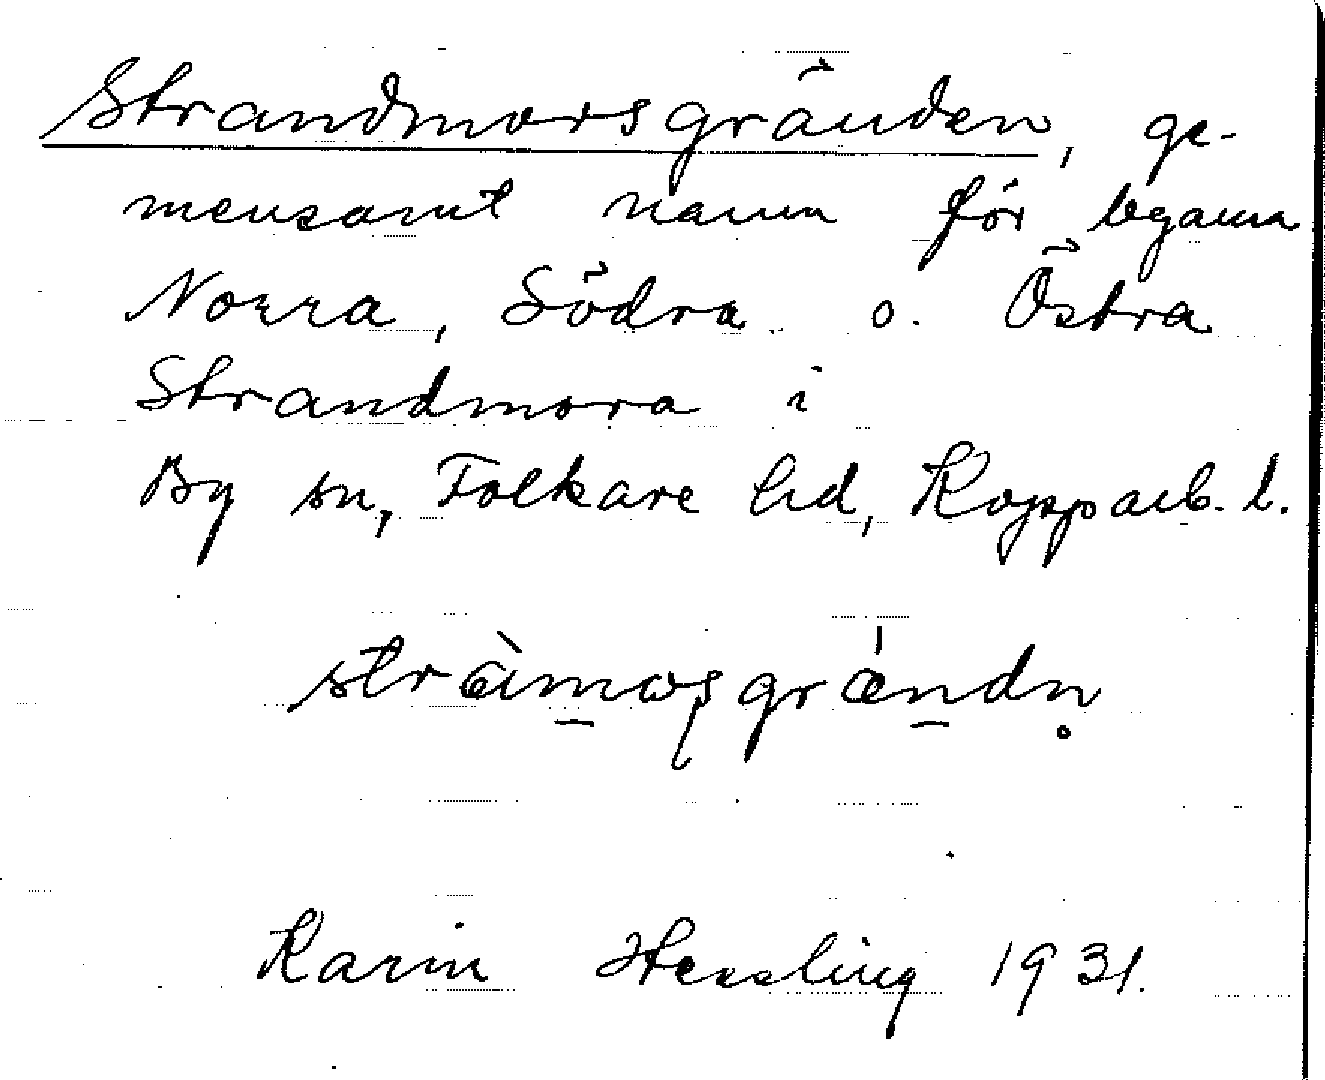 Strandmorsgränden, ge-
mensamt namn för byarna
Norra, Södra o. Östra
Strandmora i
By sn, Folkare hd, Kopparb. l.
stràmωʂgrǽndn̥
Karin Hessling 1931.